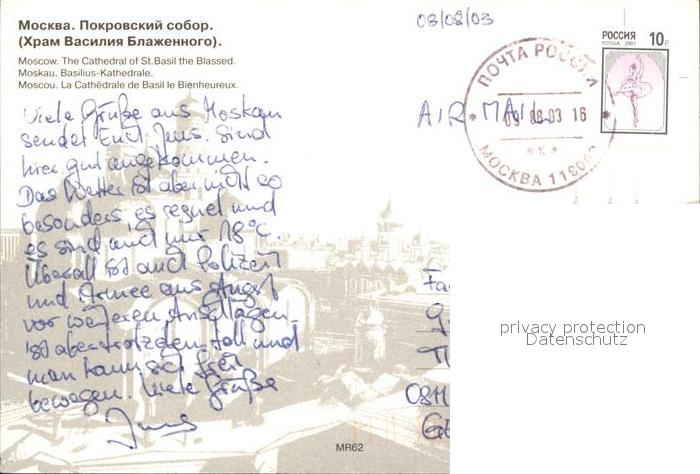 Москва. Покровский собор.
(Храм Василия Блаженного).
Moscow. The Cathedral of St.Basil the Blassed.
Moskau. Basilius-Kathedrale.
Moscou. La Cathédrale de Basil le Bienheureux.
03/08/03
РОССИЯ 10 Р
ROSSIA 2001
ПОЧТА РОССИИ
03 16
МОСКВА
AIR MAIL
Viele Grüße aus Moskau
sendet Euch Jens. Sind
hier gut angekommen.
Das Wetter ist aber nicht so
besonders es regnet und
es sind auch nur 18°C.
Überall ist auch Polizei
und Armee aus Angst
vor weiteren Anschlägen.
ist aber trotzdem toll und
man kann sich frei
bewegen. Viele Grüße
Jens
Fa
privacy protection
Datenschutz
MR62